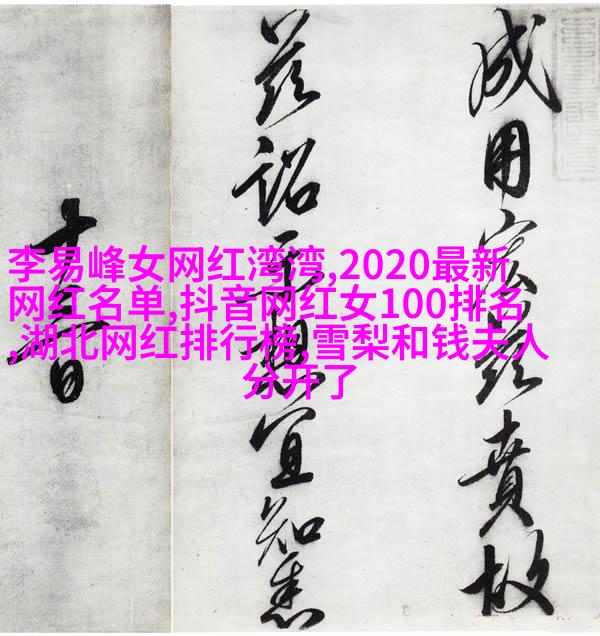 李易峰女网红湾湾,2020最新
网红名单,抖音网红女100排名
,湖北网红排行榜,雪梨和钱夫人
分开了
成用宏茲賁故
茲詔示想宜知悉